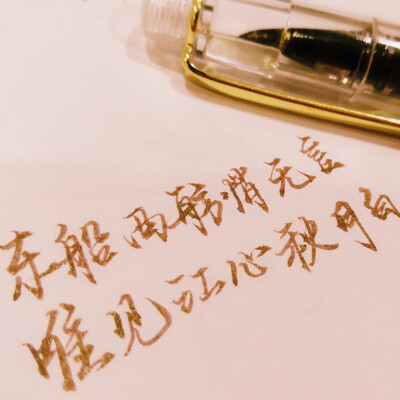 东船西舫悄无言
唯见江心秋月白